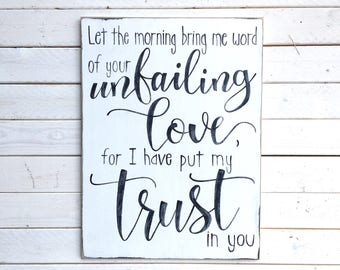 Let the morning bring me word
of your
unfailing
love,
for I have put my
trust
in you